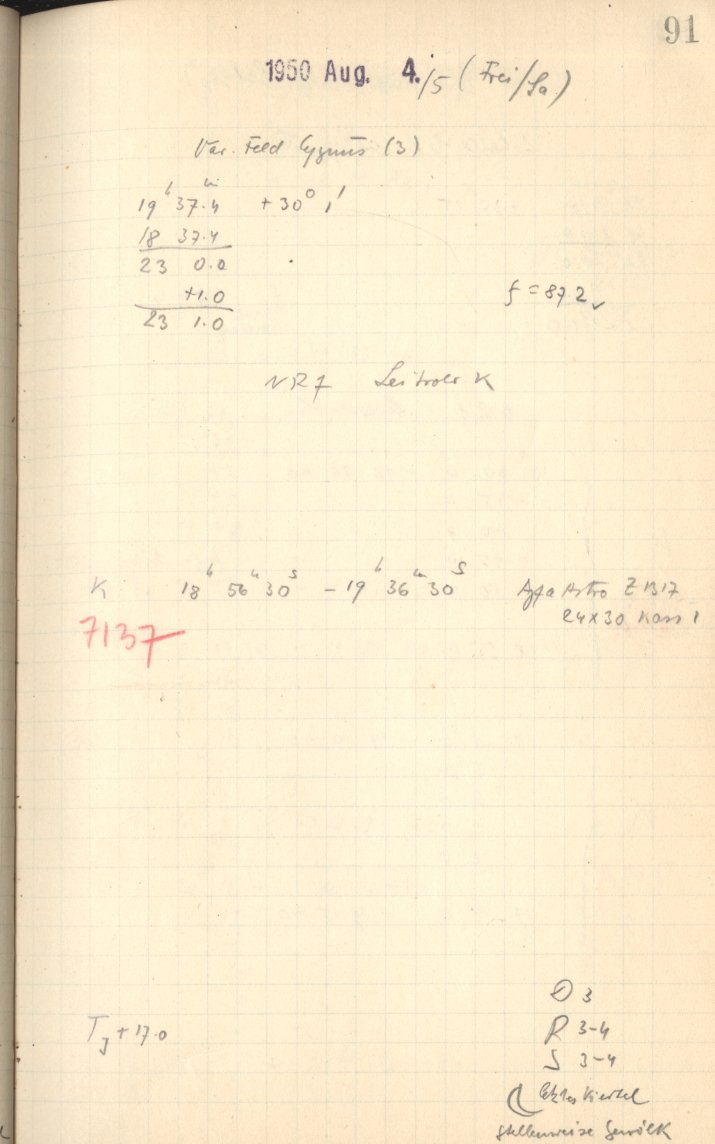 91
1950 Aug. 4./5 (Frei/Sa)
Var. Feld Cygnus (3)
19ʰ 37.4ᵐ + 30° 1'
18 37.4
23 0.0
+1.0
23 1.0
f = 87.2
NR 7 Leitrohr K
K 18ʰ 56ᵐ 30ˢ – 19ʰ 36ᵐ 30ˢ Agfa Astro Z 1317
7137
24x30 Kass 1
T + 17.0
3
R 3-4
S 3-4
letztes Viertel
stellenweise Gewölk